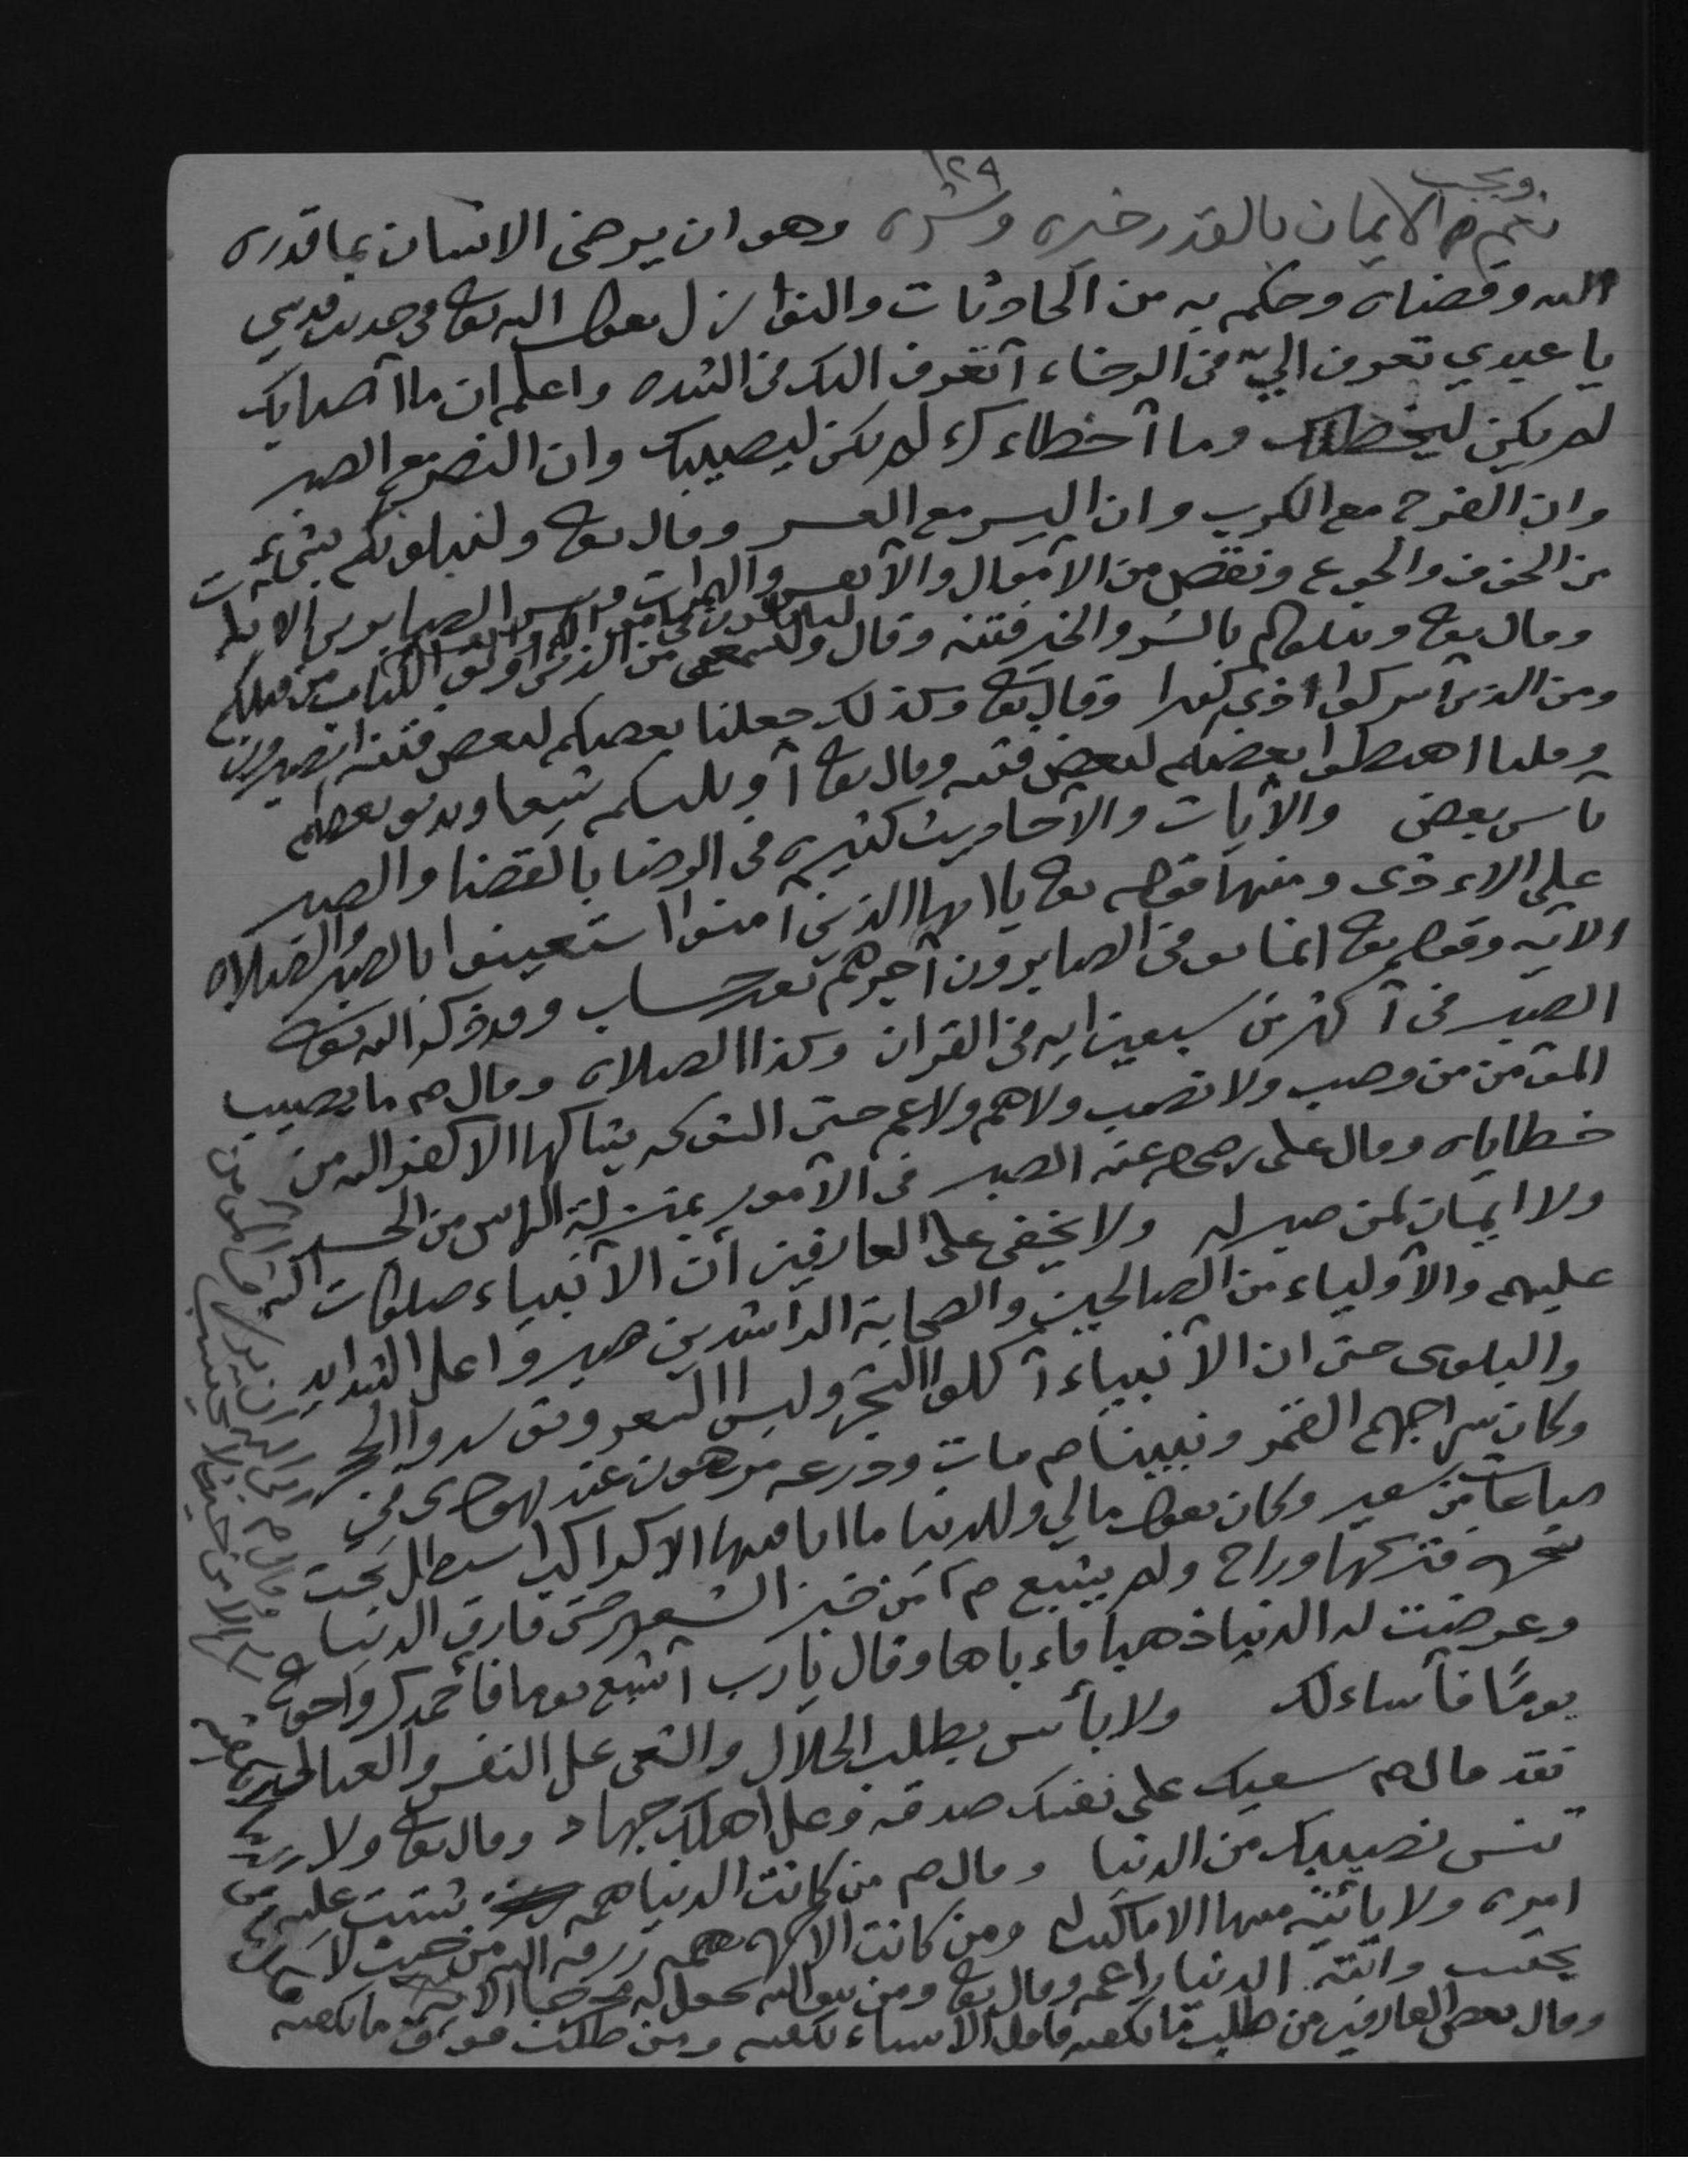 ١٢٩
ويجب
نعم الايمان بالقدر خيره وشره وهو ان يرضى الانسان بما قدره
الله وقضاه وحكم به من الحادثات والنوازل يقول الله تعا في حديث قدسي
يا عبدي تعرف اليّ في الرخاء أتعرف اليك في الشده واعلم ان ما أصابك
لم يكن ليخطئك وما أخطاءك لم يكن ليصيبك وان النصر مع الصبر
وان الفرج مع الكرب وان اليسر مع العسر وقال تعا ولنبلونكم بشيء
من الخوف والجوع ونقص من الأموال والأنفس والثمرات وبشر الصابرين الايه
وقال تعا ونبلوكم بالشر والخير فتنه وقال ولتسمعن من الذين اوتو الكتاب من قبلكم
ومن الذين اشركوا اذى كثيرا وقال تعا وكذلك جعلنا بعضكم لبعض فتنه اتصبرون
وقلنا اهبطوا بعضكم لبعض فتنه وقال تعا أو يلبسكم شيعا ويذيق بعضكم
بأس بعض والآيات والأحاديث كثيره في الرضا بالقضا والصبر
على الاءذى ومنها قوله تعا يا ايها الذين آمنوا استعينوا بالصبر والصلاه
الايه وقوله تعا انما يوفى الصابرون أجرهم بغير حساب وقد ذكر الله تعا
الصبر في أكثر من سبعين ايه في القران وكذا الصلاه وقال ص ما يصيب
المؤمن من وصب ولا نصب ولا هم ولا غم حتى الشوكه يشاكها الا كفر الله من
خطاياه وقال علي رضي الله عنه الصبر في الأمور بمنزلة الراس من الجسد
ولا ايمان لمن صبر له ولا يخفى على العارفين أن الأنبياء صلوات الله
عليهم والأولياء من الصالحين والصحابة الراشدين صبروا على الشدايد
والبلوى حتى ان الأنبياء أكلوا الشجر ولبسوا الشعر وتوسدوا الحجر
وكان سراجهم القمر ونبينا ص مات ودرعه مرهون عند يهودى في
صاعات من شعير وكان يقول مالي وللدنيا ما انا فيها الا كراكب استظل تحت
شجره فتركها وراح ولم يشبع ص من خبز الشعير حتى فارق الدنيا
وعرضت له الدنيا ذهبا فاءباها وقال يا رب أشبع يوما فأحمدك وأجوع
يومًا فأساءلك ولا بأس بطلب الحلال والسعى على النفس والعيال
فقد قال ص سعيك على نفسك صدقه وعلى اهلك جهاد وقال تعا ولا
تنس نصيبك من الدنيا وقال ص من كانت الدنيا همه شتت عليه
امره ولا يأتيه منها الا ماكتب له ومن كانت الاخره همه رزقه الله من حيث لا
يحتسب واتته الدنيا راغمه وقال تعا ومن يتق الله يجعل له مخرجا الايه
وقال بعض العارفين من طلب ما يكفيه فاقل الاشياء تكفيه ومن طلب فوق ما يكفيه